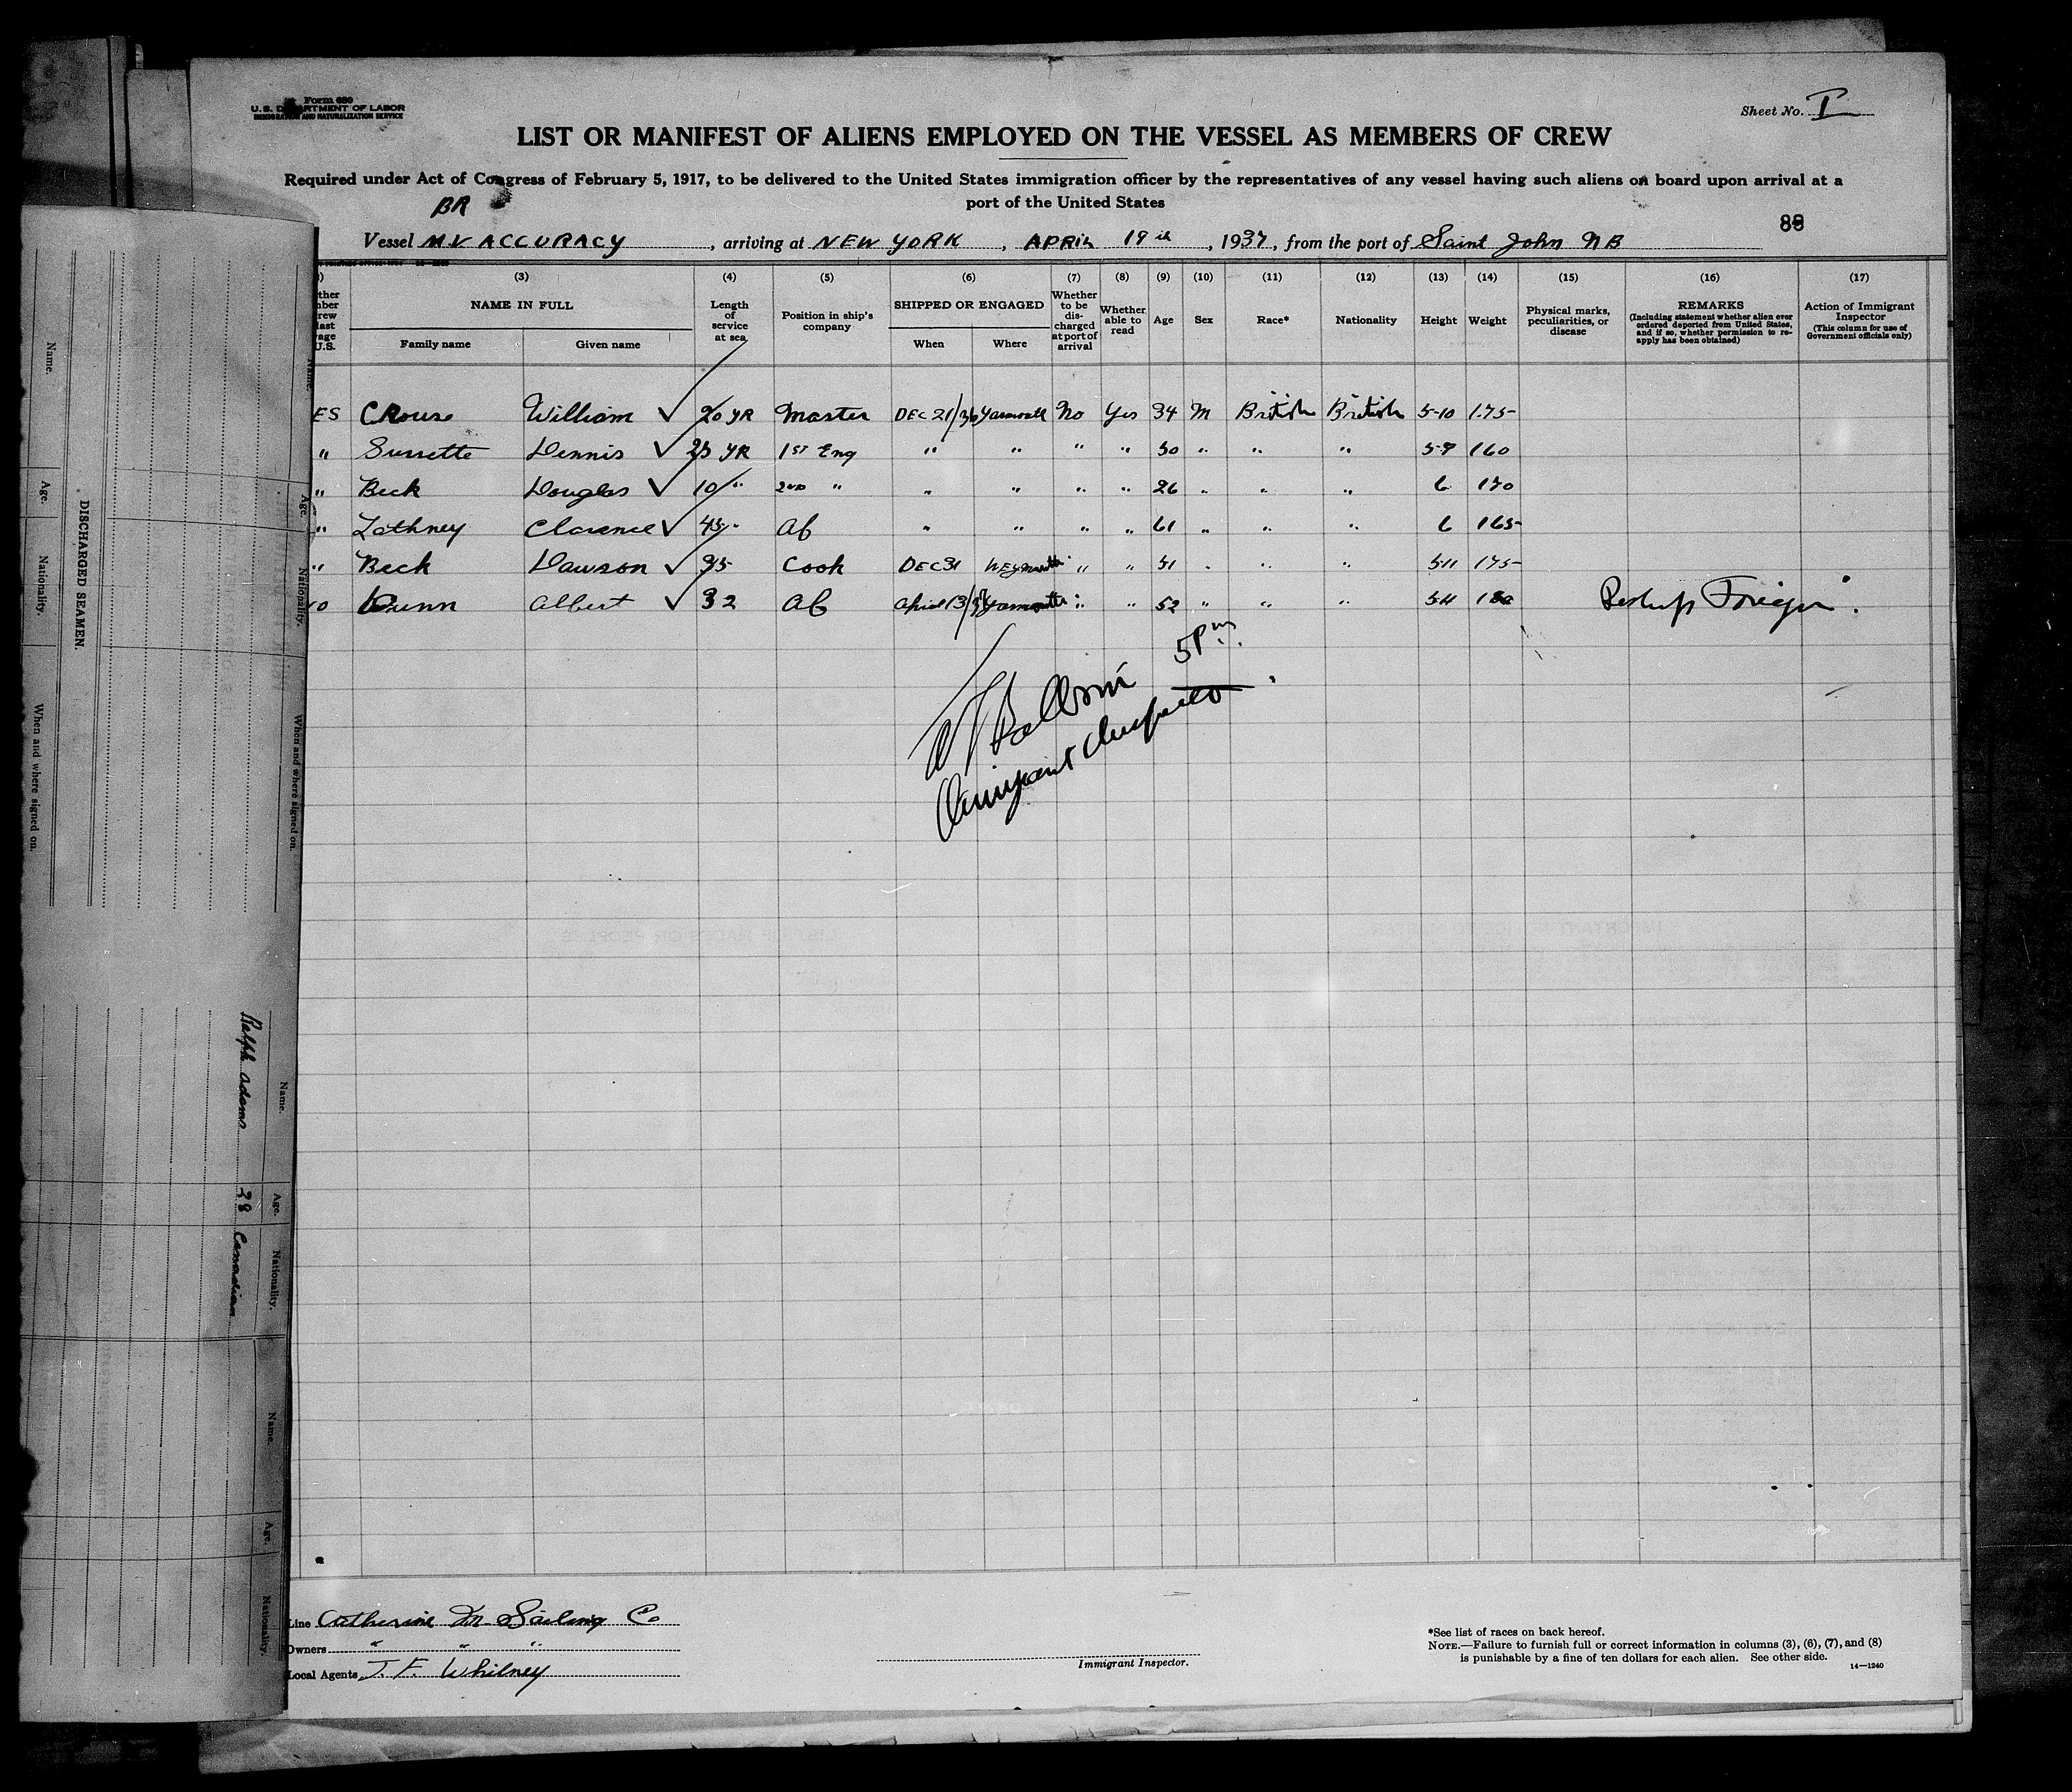 Form 680
U. S. DEPARTMENT OF LABOR
IMMIGRATION AND NATURALIZATION SERVICE
Sheet No. I
LIST OR MANIFEST OF ALIENS EMPLOYED ON THE VESSEL AS MEMBERS OF CREW
Required under Act of Congress of February 5, 1917, to be delivered to the United States immigration officer by the representatives of any vessel having such aliens on board upon arrival at a
port of the United States
BR
88
Vessel M.V ACCURACY, arriving at NEW YORK, APRIL 19th, 1937, from the port of Saint John NB
(3) (4) (5) (6) (7) (8) (9) (10) (11) (12) (13) (14) (15) (16) (17)
NAME IN FULL
Family name Given name
Length of service at sea
Position in ship's company
SHIPPED OR ENGAGED
When Where
Whether to be discharged at port of arrival
Whether able to read
Age
Sex
Race*
Nationality
Height
Weight
Physical marks, peculiarities, or disease
REMARKS
(Including statement whether alien ever ordered deported from United States, and if so, whether permission to reapply has been obtained)
Action of Immigrant Inspector
(This column for use of Government officials only)
ES Crouse William ✓ 20 YR Master DEC 21/36 Yarmouth No Yes 34 M British British 5-10 175
" Surrette Dennis ✓ 25 YR 1ST Eng " " " " 50 " " " 5-9 160
" Beck Douglas ✓ 10 " 2nd " " " " " 26 " " " 6 170
" Lothney Clarence ✓ 45 " Ab " " " " 61 " " " 6 165
" Beck Dawson ✓ 35 Cook DEC 31 Weymouth " " 51 " " " 5-11 175
o Dunn Albert ✓ 32 Ab April 13/37 Yarmouth " " 52 " " " 5-11 180
5 Pm.
Immigrant Inspector
Line Catherine M. Sailing Co
Owners " " "
Local Agents J. F. Whitney
Immigrant Inspector.
*See list of races on back hereof.
NOTE.—Failure to furnish full or correct information in columns (3), (6), (7), and (8)
is punishable by a fine of ten dollars for each alien. See other side.
14—1240
DISCHARGED SEAMEN.
Name. Age. Nationality. When and where signed on.
Name. Age. Nationality.
Ralph Adams 38 Canadian
Name. Age. Nationality.